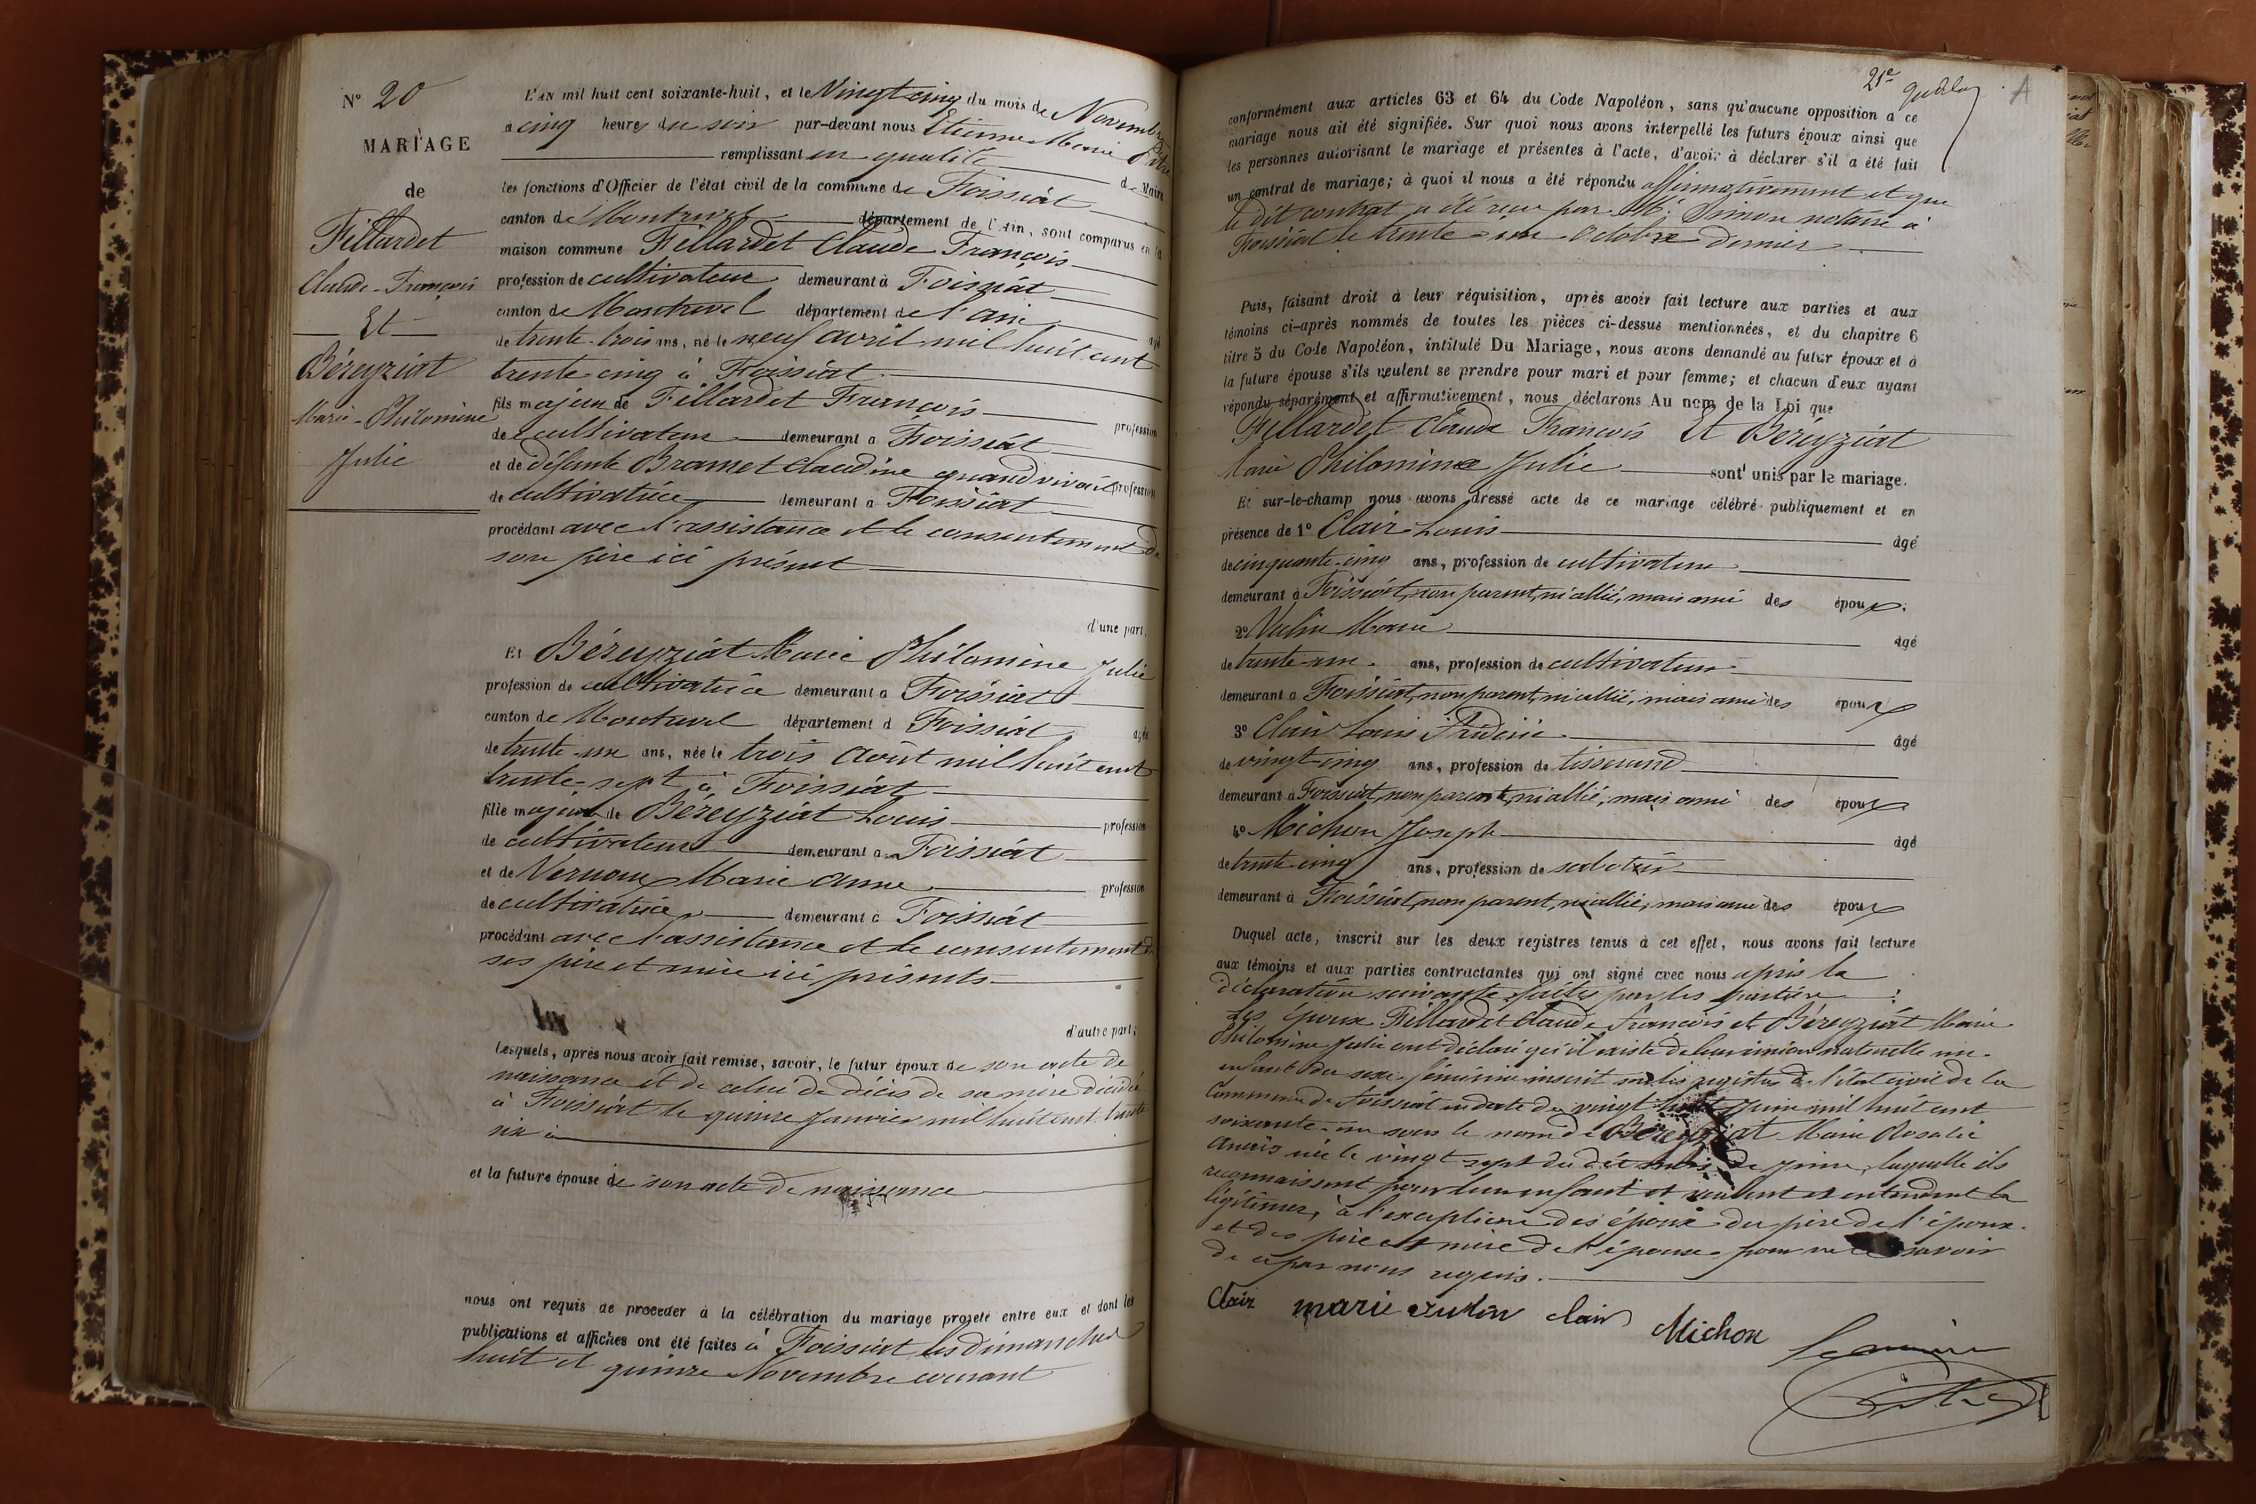 N° 20
MARIAGE
de
Fillardet
Claude-François
Et
Béreyziat
Marie-Philomine
Julie
L'AN mil huit cent soixante-huit, et le Vingt cinq du mois de Novembre
à cinq heures du soir par-devant nous Etienne Marie
remplissant en qualité de Maire
les fonctions d'Officier de l'état civil de la commune de Foissiat
canton de Montrevel département de l'Ain, sont comparus en la
maison commune Fillardet Claude François
profession de cultivateur demeurant à Foissiat
canton de Montrevel département de l'ain âgé
de trente-trois ans, né le neuf avril mil huit cent
trente cinq à Foissiat
fils majeur de Fillardet François profession
de cultivateur demeurant à Foissiat
et de défunte Bramet Claudine quand vivait profession
de cultivatrice demeurant à Foissiat
procédant avec l'assistance et le consentement de
son père ici présent
d'une part,
Et Béreyziat Marie Philomine Julie
profession de cultivatrice demeurant à Foissiat
canton de Montrevel département d Foissiat âgée
de trente-un ans, née le trois Août mil huit cent
trente-sept à Foissiat
fille majeure de Béreyziat Louis profession
de cultivateur demeurant à Foissiat
et de Vernoux Marie Anne profession
de cultivatrice demeurant à Foissiat
procédant avec l'assistance et le consentement de
ses père et mère ici présents
d'autre part;
Lesquels, après nous avoir fait remise, savoir, le futur époux de son acte de
naissance et de celui de décès de sa mère décédée
à Foissiat le quinze Janvier mil huit cent trente
six
et la future épouse de son acte de naissance
nous ont requis de procéder à la célébration du mariage projeté entre eux et dont les
publications et affiches ont été faites à Foissiat les dimanches
huit et quinze Novembre courant
21e
conformément aux articles 63 et 64 du Code Napoléon, sans qu'aucune opposition à ce
mariage nous ait été signifiée. Sur quoi nous avons interpellé les futurs époux ainsi que
les personnes autorisant le mariage et présentes à l'acte, d'avoir à déclarer s'il a été fait
un contrat de mariage; à quoi il nous a été répondu affirmativement et que
le dit contrat a été reçu par Me Simon notaire à
Foissiat le trente-un Octobre dernier
Puis, faisant droit à leur réquisition, après avoir fait lecture aux parties et aux
témoins ci-après nommés de toutes les pièces ci-dessus mentionnées, et du chapitre 6
titre 5 du Code Napoléon, intitulé Du Mariage, nous avons demandé au futur époux et à
la future épouse s'ils veulent se prendre pour mari et pour femme; et chacun d'eux ayant
répondu séparément et affirmativement, nous déclarons Au nom de la Loi que
Fillardet Claude François Et Béreyziat
Marie Philomine Julie sont unis par le mariage.
Et sur-le-champ nous avons dressé acte de ce mariage célébré publiquement et en
présence de 1° Clair Louis âgé
de cinquante-cinq ans, profession de cultivateur
demeurant à Foissiat, non parent, ni allié, mais ami des époux;
2° Vulin Marie âgé
de trente-un ans, profession de cultivateur
demeurant à Foissiat, non parent, ni allié, mais ami des époux
3° Clair Louis Frédéric âgé
de vingt-cinq ans, profession de tisserand
demeurant à Foissiat, non parent, ni allié, mais ami des époux
4° Michon Joseph âgé
de trente-cinq ans, profession de sabotier
demeurant à Foissiat, non parent, ni allié, mais ami des époux
Duquel acte, inscrit sur les deux registres tenus à cet effet, nous avons fait lecture
aux témoins et aux parties contractantes qui ont signé avec nous après la
déclaration suivante faite par les parties:
Les époux Fillardet Claude François et Béreyziat Marie
Philomine Julie ont déclaré qu'il existe de leur union naturelle un
enfant du sexe féminin inscrit sur les registres de l'état civil de la
Commune de Foissiat en date du vingt huit Juin mil huit cent
soixante-un sous le nom de Béreyziat Marie Rosalie
Anaïs née le vingt sept du dit mois de Juin, laquelle ils
reconnaissent pour leur enfant et veulent et entendent la
légitimer, à l'exception des époux du père de l'époux
et des père et mère de l'épouse pour ne le savoir
de ce par nous requis.
Clair marie vulin clair Michon Le maire